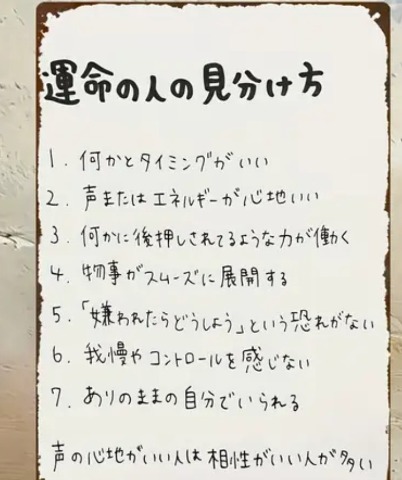 運命の人の見分け方
1. 何かとタイミングがいい
2. 声またはエネルギーが心地いい
3. 何かに後押しされてるような力が働く
4. 物事がスムーズに展開する
5. 「嫌われたらどうしよう」という恐れがない
6. 我慢やコントロールを感じない
7. ありのままの自分でいられる
声の心地がいい人は相性がいい人が多い